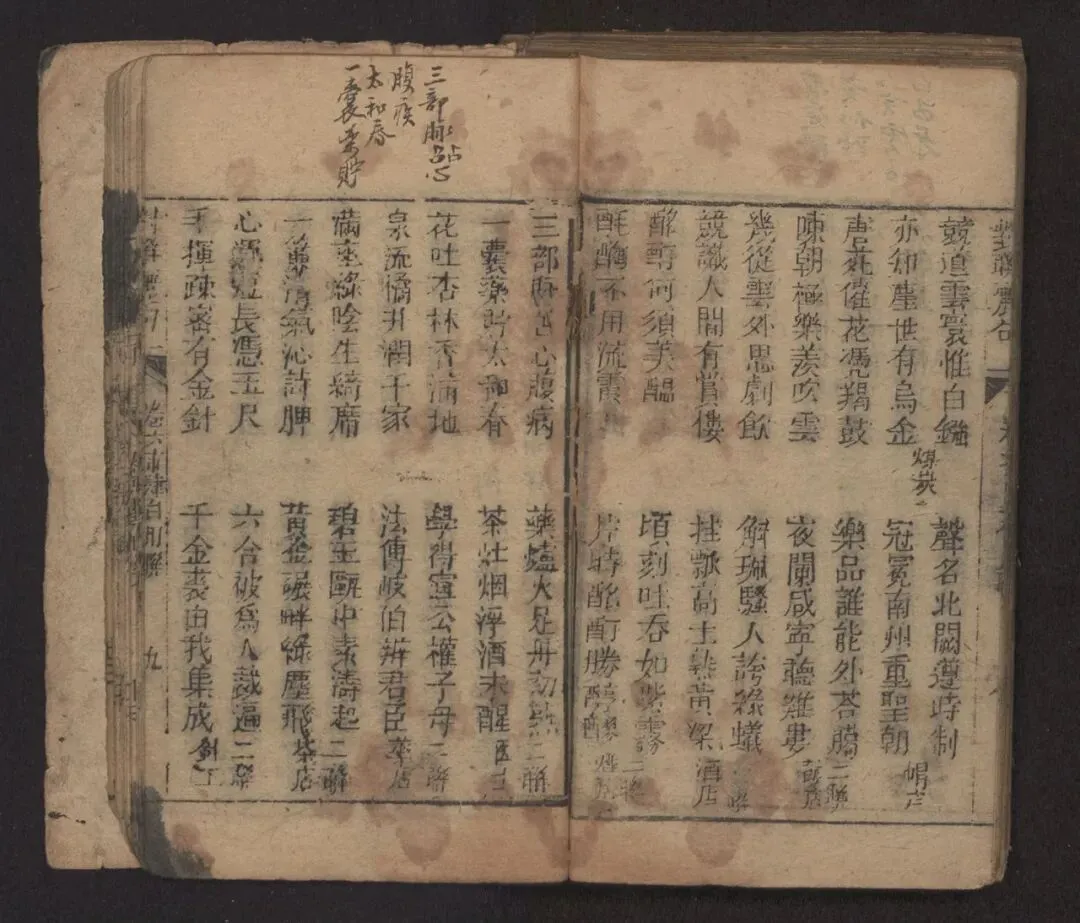 競道雲裳惟白鏹
聲名北闕遵時制
亦知塵世有烏金
煤炭
冠冕南州重聖朝
帽店
唐苑催花馮羯鼓
藥品誰能外答臈
二聯
陳朝極樂羨吹雲
夜闌咸寧聽雞婁
鼓店
幾從雲外思劇飲
斛珈騷人誇綠蟻
聯
競識人間有賞樓
挂瓢高士熱黃粱
酒店
酩酊何須美醞
頃刻吐吞如紫霧
二聯
酕醄不用流霞
片時酩酊勝
三部脉占心
腹疾
太和春
一囊藥貯
三部脉占心腹病
藥爐火足丹初熟
二聯
一囊藥貯太和春
茶灶烟浮酒未醒
医
花吐杏林香滿地
學得宣公權子母
二聯
泉流橘井潤千家
法傳岐伯辨君臣
藥店
滿座綠陰生綺席
碧玉甌中素濤起
二聯
一簾清氣沁詩脾
黃金碾畔綠塵飛
茶店
心源短長憑玉尺
六合被爲人裁遍
二聯
手揮疎密有金針
千金裘由我集成
針工
卷六
九